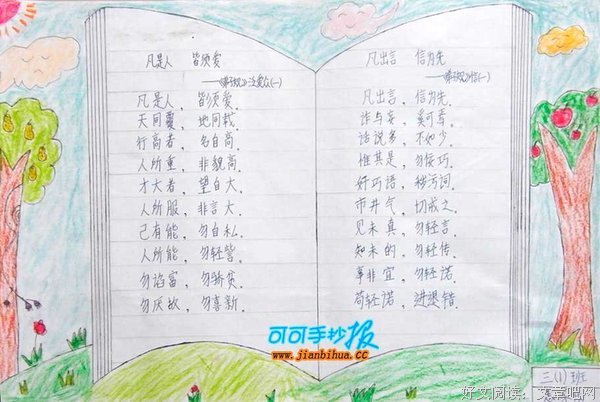 凡是人 皆须爱
——《弟子规》泛爱众(一)
凡是人，皆须爱。
天同覆，地同载。
行高者，名自高。
人所重，非貌高。
才大者，望自大。
人所服，非言大。
己有能，勿自私。
人所能，勿轻訾。
勿谄富，勿骄贫。
勿厌故，勿喜新。
凡出言 信为先
——《弟子规》信(一)
凡出言，信为先。
诈与妄，奚可焉。
话说多，不如少。
惟其是，勿佞巧。
奸巧语，秽污词。
市井气，切戒之。
见未真，勿轻言。
知未的，勿轻传。
事非宜，勿轻诺。
苟轻诺，进退错。
可可手抄报
www.jianbihua.cc
三(1)班
好文阅读：文章吧网